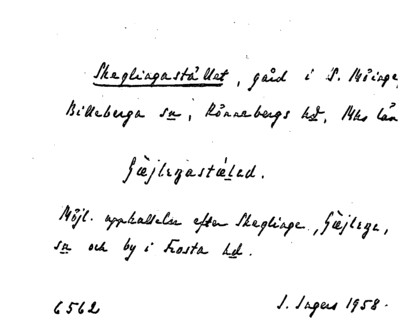 Skeglingastället, gård i S. Möinge,
Billeberga sn, Rönnebergs hd, Mhs län
Gæjlegastæled.
Möjl. uppkallelse efter Skeglinge, Gæjlega,
sn och by i Frosta hd.
6562 I. Ingers 1958.